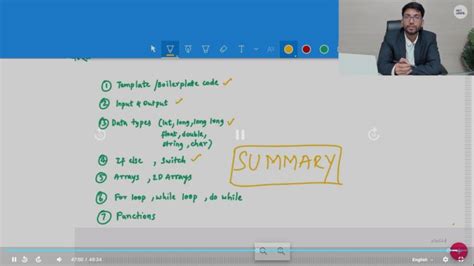 ① Template/Boilerplate code ✓
② Input & Output ✓
③ Data types (int, long, long long ✓
float, double,
string, char)
④ If else, Switch ✓
⑤ Arrays, 2D Arrays
⑥ For loop, while loop, do while
⑦ Functions
SUMMARY
English